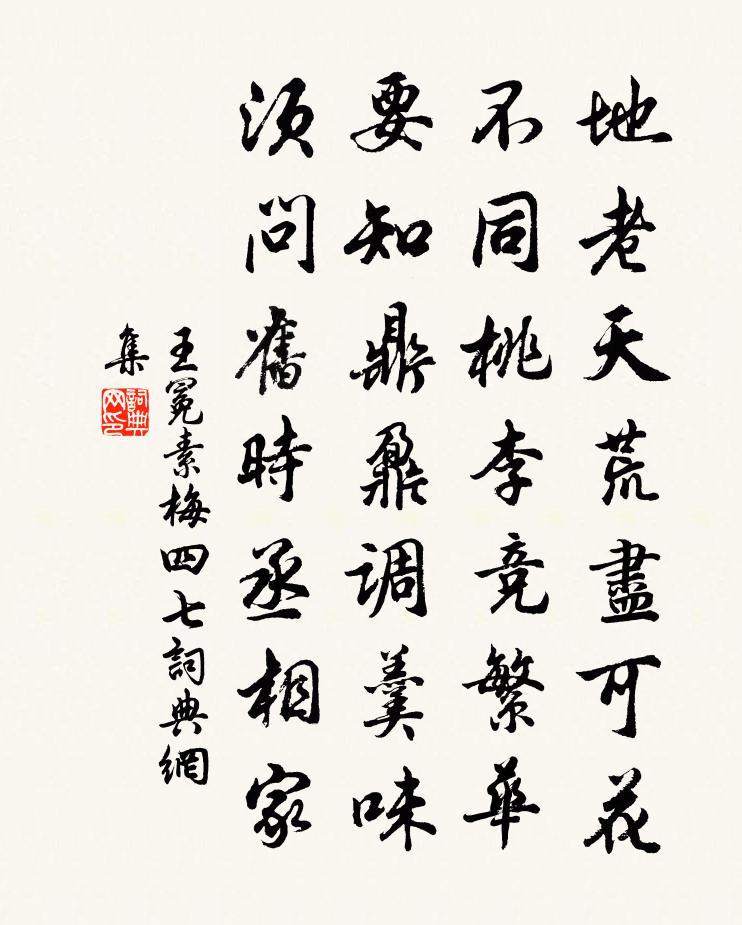 地老天荒盡可花
不同桃李竞繁華
要知鼎鼐調羹味
須問舊時丞相家
王冕素梅四七詞典網
集
詞典
网印